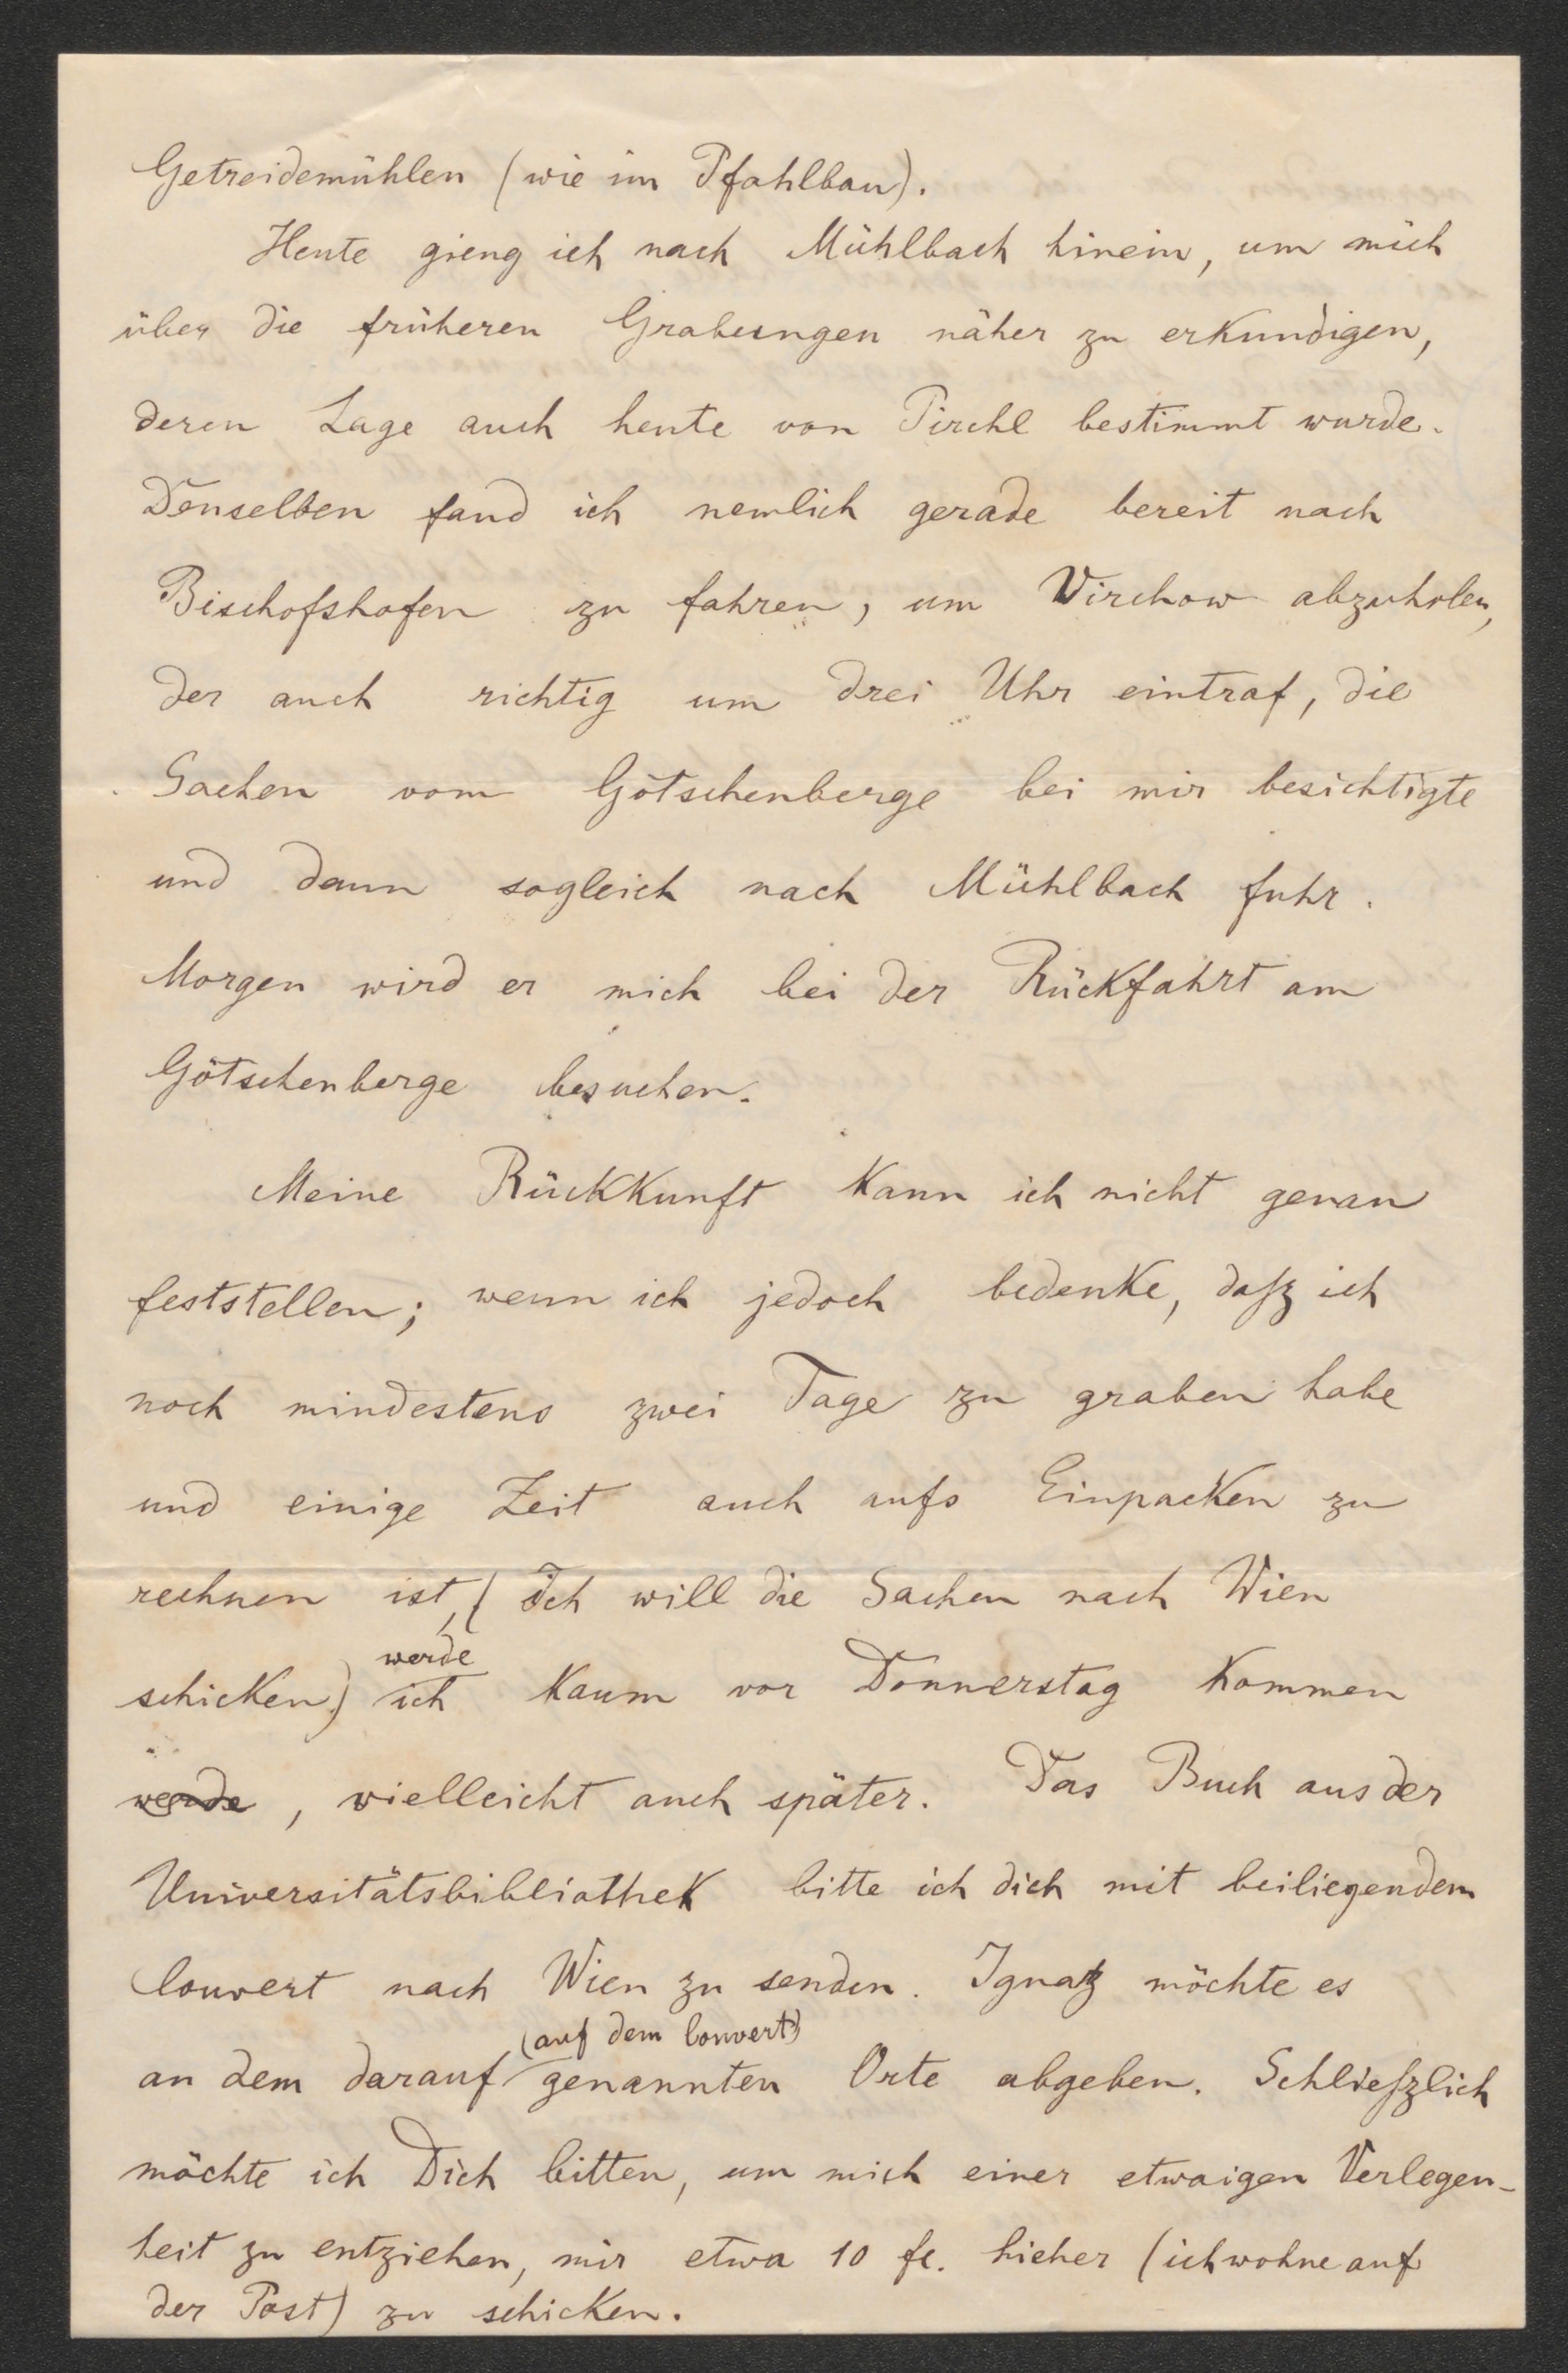 Getreidemühlen (wie im Pfahlbau).
Heute gieng ich nach Mühlbach hinein, um mich
über die früheren Grabungen näher zu erkundigen,
deren Lage auch heute von Pirchl bestimmt wurde.
Denselben fand ich nemlich gerade bereit nach
Bischofshofen zu fahren, um Virchow abzuholen,
der auch richtig um drei Uhr eintraf, die
Sachen vom Götschenberge bei mir besichtigte
und dann sogleich nach Mühlbach fuhr.
Morgen wird er mich bei der Rückfahrt am
Götschenberge besuchen.
Meine Rückkunft kann ich nicht genau
feststellen; wenn ich jedoch bedenke, daſz ich
noch mindestens zwei Tage zu graben habe
und einige Zeit auch aufs Einpacken zu
rechnen ist, (Ich will die Sachen nach Wien
werde
schicken) ich kaum vor Donnerstag kommen
werde, vielleicht auch später. Das Buch aus der
Universitätsbibliothek bitte ich dich mit beiliegendem
Couvert nach Wien zu senden. Ignatz möchte es
(auf dem Couvert)
an dem darauf genannten Orte abgeben. Schlieſzlich
möchte ich Dich bitten, um mich einer etwaigen Verlegen-
heit zu entziehen, mir etwa 10 fl. hieher (ich wohne auf
der Post) zu schicken.